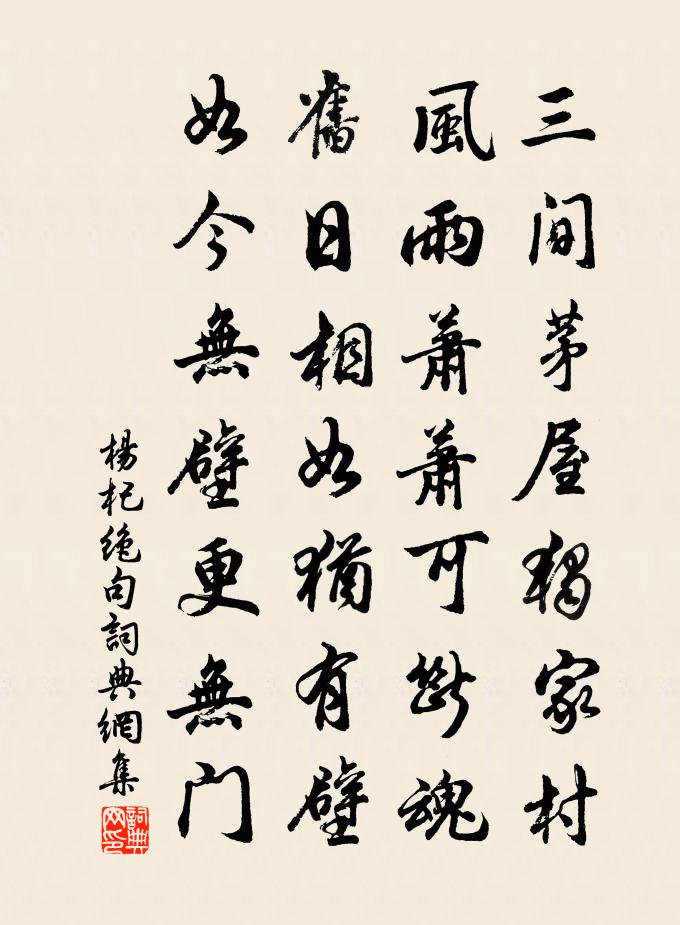 三間茅屋獨家村
風雨蕭蕭可斷魂
舊日相如猶有壁
如今無壁更無門
楊杞絕句詞典網集
詞典網印